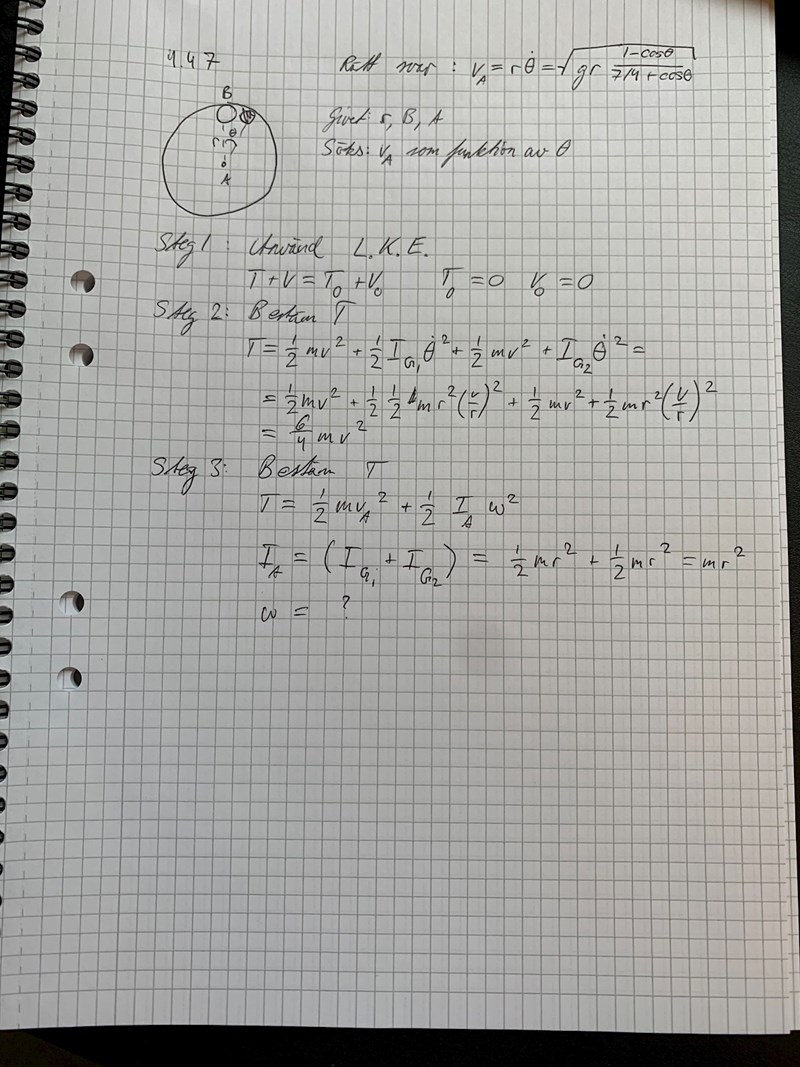 4.47
Rätt svar : v_A = rθ̇ = √(gr (1-cosθ)/(7/4 + cosθ))
B
θ
r
A
Givet: r, B, A
Söks: v_A som funktion av θ
Steg 1 : Använd L.K.E.
T + V = T_0 + V_0   T_0 = 0   V_0 = 0
Steg 2: Bestäm T
T = 1/2 mv² + 1/2 I_G1 θ̇² + 1/2 mv² + I_G2 θ̇² =
= 1/2 mv² + 1/2 1/2 mr² (v/r)² + 1/2 mv² + 1/2 mr² (v/r)²
= 6/4 mv²
Steg 3: Bestäm T
T = 1/2 mv_A² + 1/2 I_A ω²
I_A = (I_G1 + I_G2) = 1/2 mr² + 1/2 mr² = mr²
ω = ?